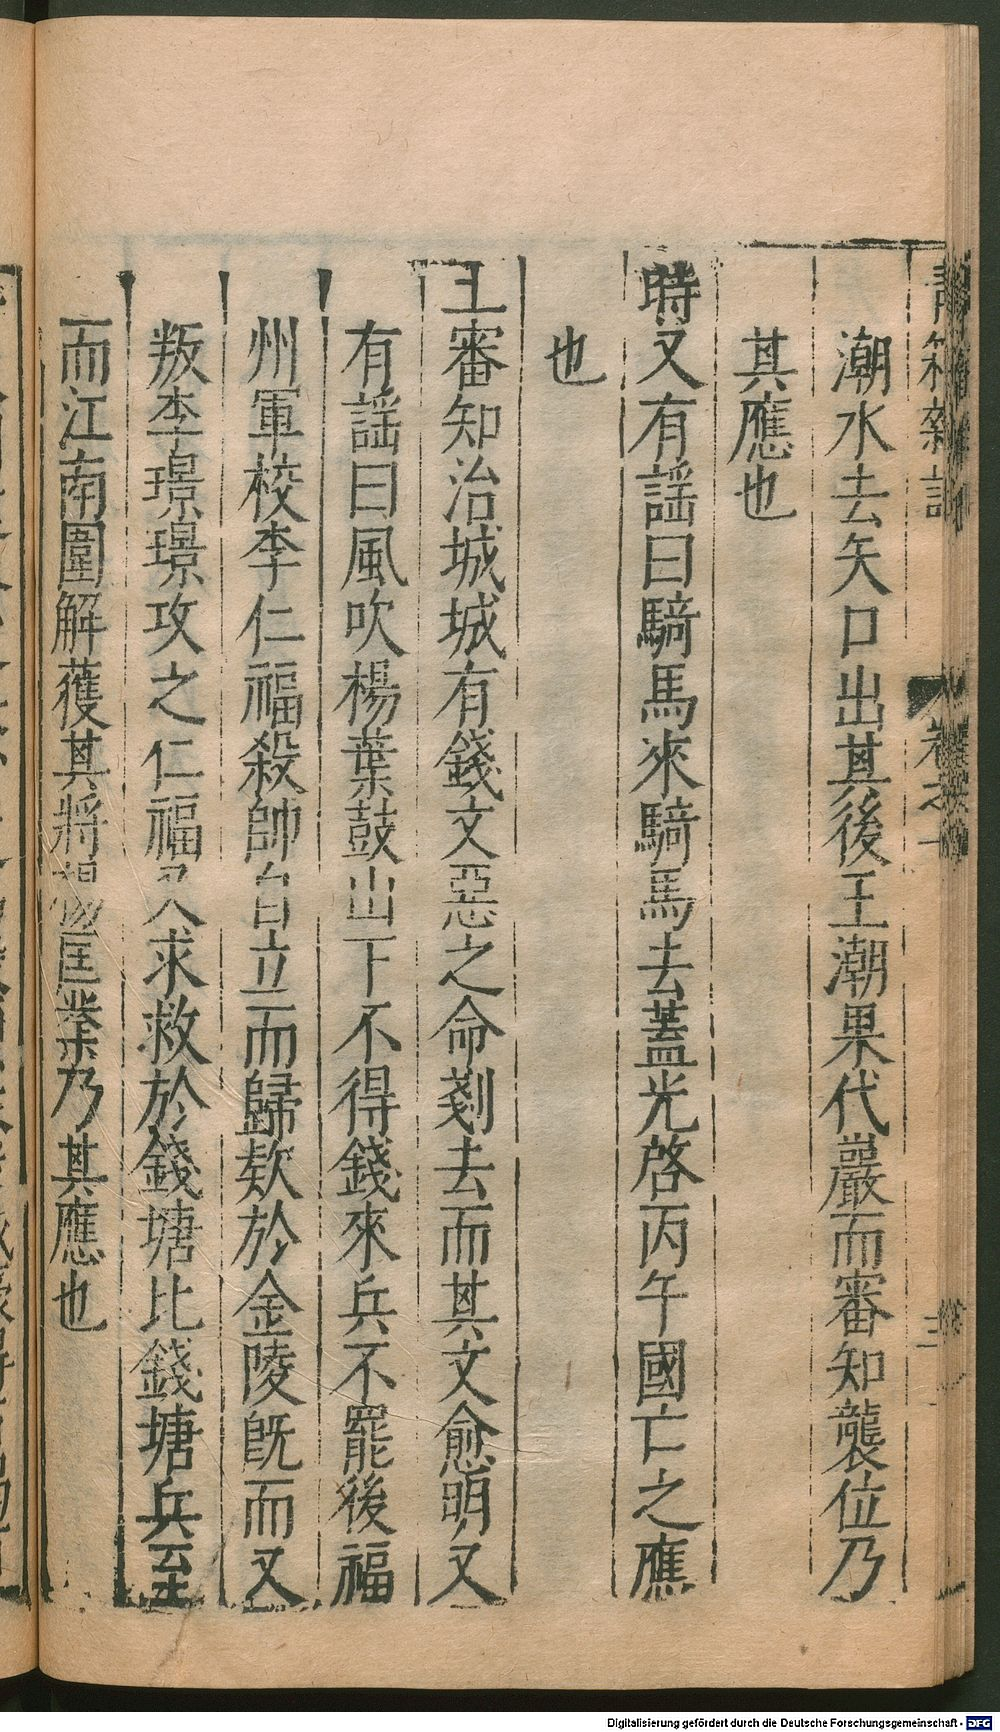 青箱雜記 卷之十 三
潮水去矢口出其後王潮果代巖而審知襲位乃
其應也
時又有謡曰騎馬來騎馬去蓋光啓丙午國亡之應
也
王審知治城城有錢文惡之命剗去而其文愈明又
有謡曰風吹楊葉鼓山下不得錢來兵不罷後福
州軍校李仁福殺帥自立而歸欵於金陵旣而又
叛李璟璟攻之仁福又求救於錢塘比錢塘兵至
而江南圍解獲其將楊匡業乃其應也
Digitalisierung gefördert durch die Deutsche Forschungsgemeinschaft - DFG